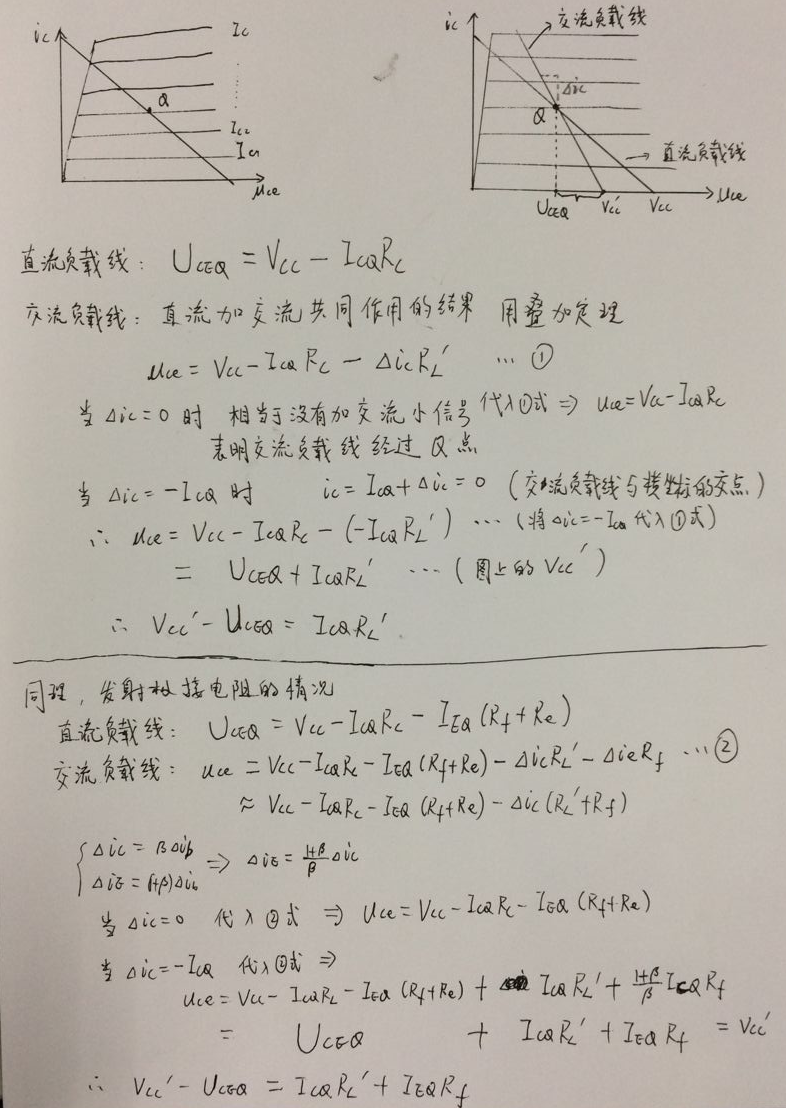 ic
Ic
Q
Ic2
Ic1
Uce
ic
交流负载线
Δic
Q
直流负载线
UCEQ Vcc' Vcc Uce
直流负载线: UCEQ = Vcc - ICQRc
交流负载线: 直流加交流共同作用的结果 用叠加定理
uce = Vcc - ICQ Rc - ΔicRL' … ①
当 Δic = 0 时 相当于没有加交流小信号 代入①式 ⇒ uce = Vcc - ICQRc
表明交流负载线经过Q点
当 Δic = -ICQ 时 ic = ICQ + Δic = 0 (交流负载线与横坐标的交点)
∴ uce = Vcc - ICQRc - (-ICQRL') … (将Δic=-ICQ代入①式)
= UCEQ + ICQRL' … (图上的 Vcc')
∴ Vcc' - UCEQ = ICQRL'
同理, 发射极接电阻的情况
直流负载线: UCEQ = Vcc - ICQRc - IEQ (Rf+Re)
交流负载线: uce = Vcc - ICQRc - IEQ (Rf+Re) - ΔicRL' - ΔieRf … ②
≈ Vcc - ICQRc - IEQ (Rf+Re) - Δic (RL'+Rf)
{ Δic = βΔib
ΔiE = (1+β)Δib ⇒ ΔiE = (1+β)/β Δic
当 Δic=0 代入②式 ⇒ Uce = Vcc - ICQ Rc - IEQ (Rf+Re)
当 Δic=-ICQ 代入②式 ⇒
uce = Vcc - ICQRL - IEQ (Rf+Re) + ICQ RL' + (1+β)/β ICQ Rf
= UCEQ + ICQ RL' + IEQ Rf = Vcc'
∴ Vcc' - UCEQ = ICQ RL' + IEQ Rf